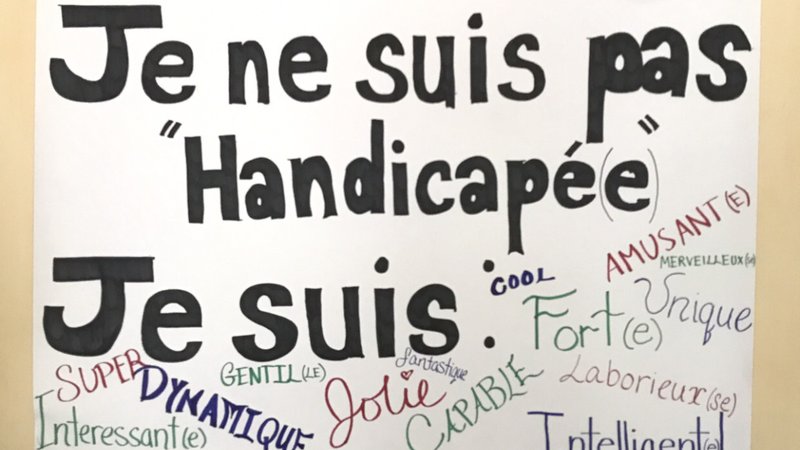 Je ne suis pas
"Handicapée(e)"
Je suis :
COOL
AMUSANT(E)
MERVEILLEUX(se)
Fort(e)
Unique
SUPER
DYNAMIQUE
GENTIL(LE)
Jolie
fantastique
CAPABLE
Laborieux(se)
Interessant(e)
Intelligent(e)